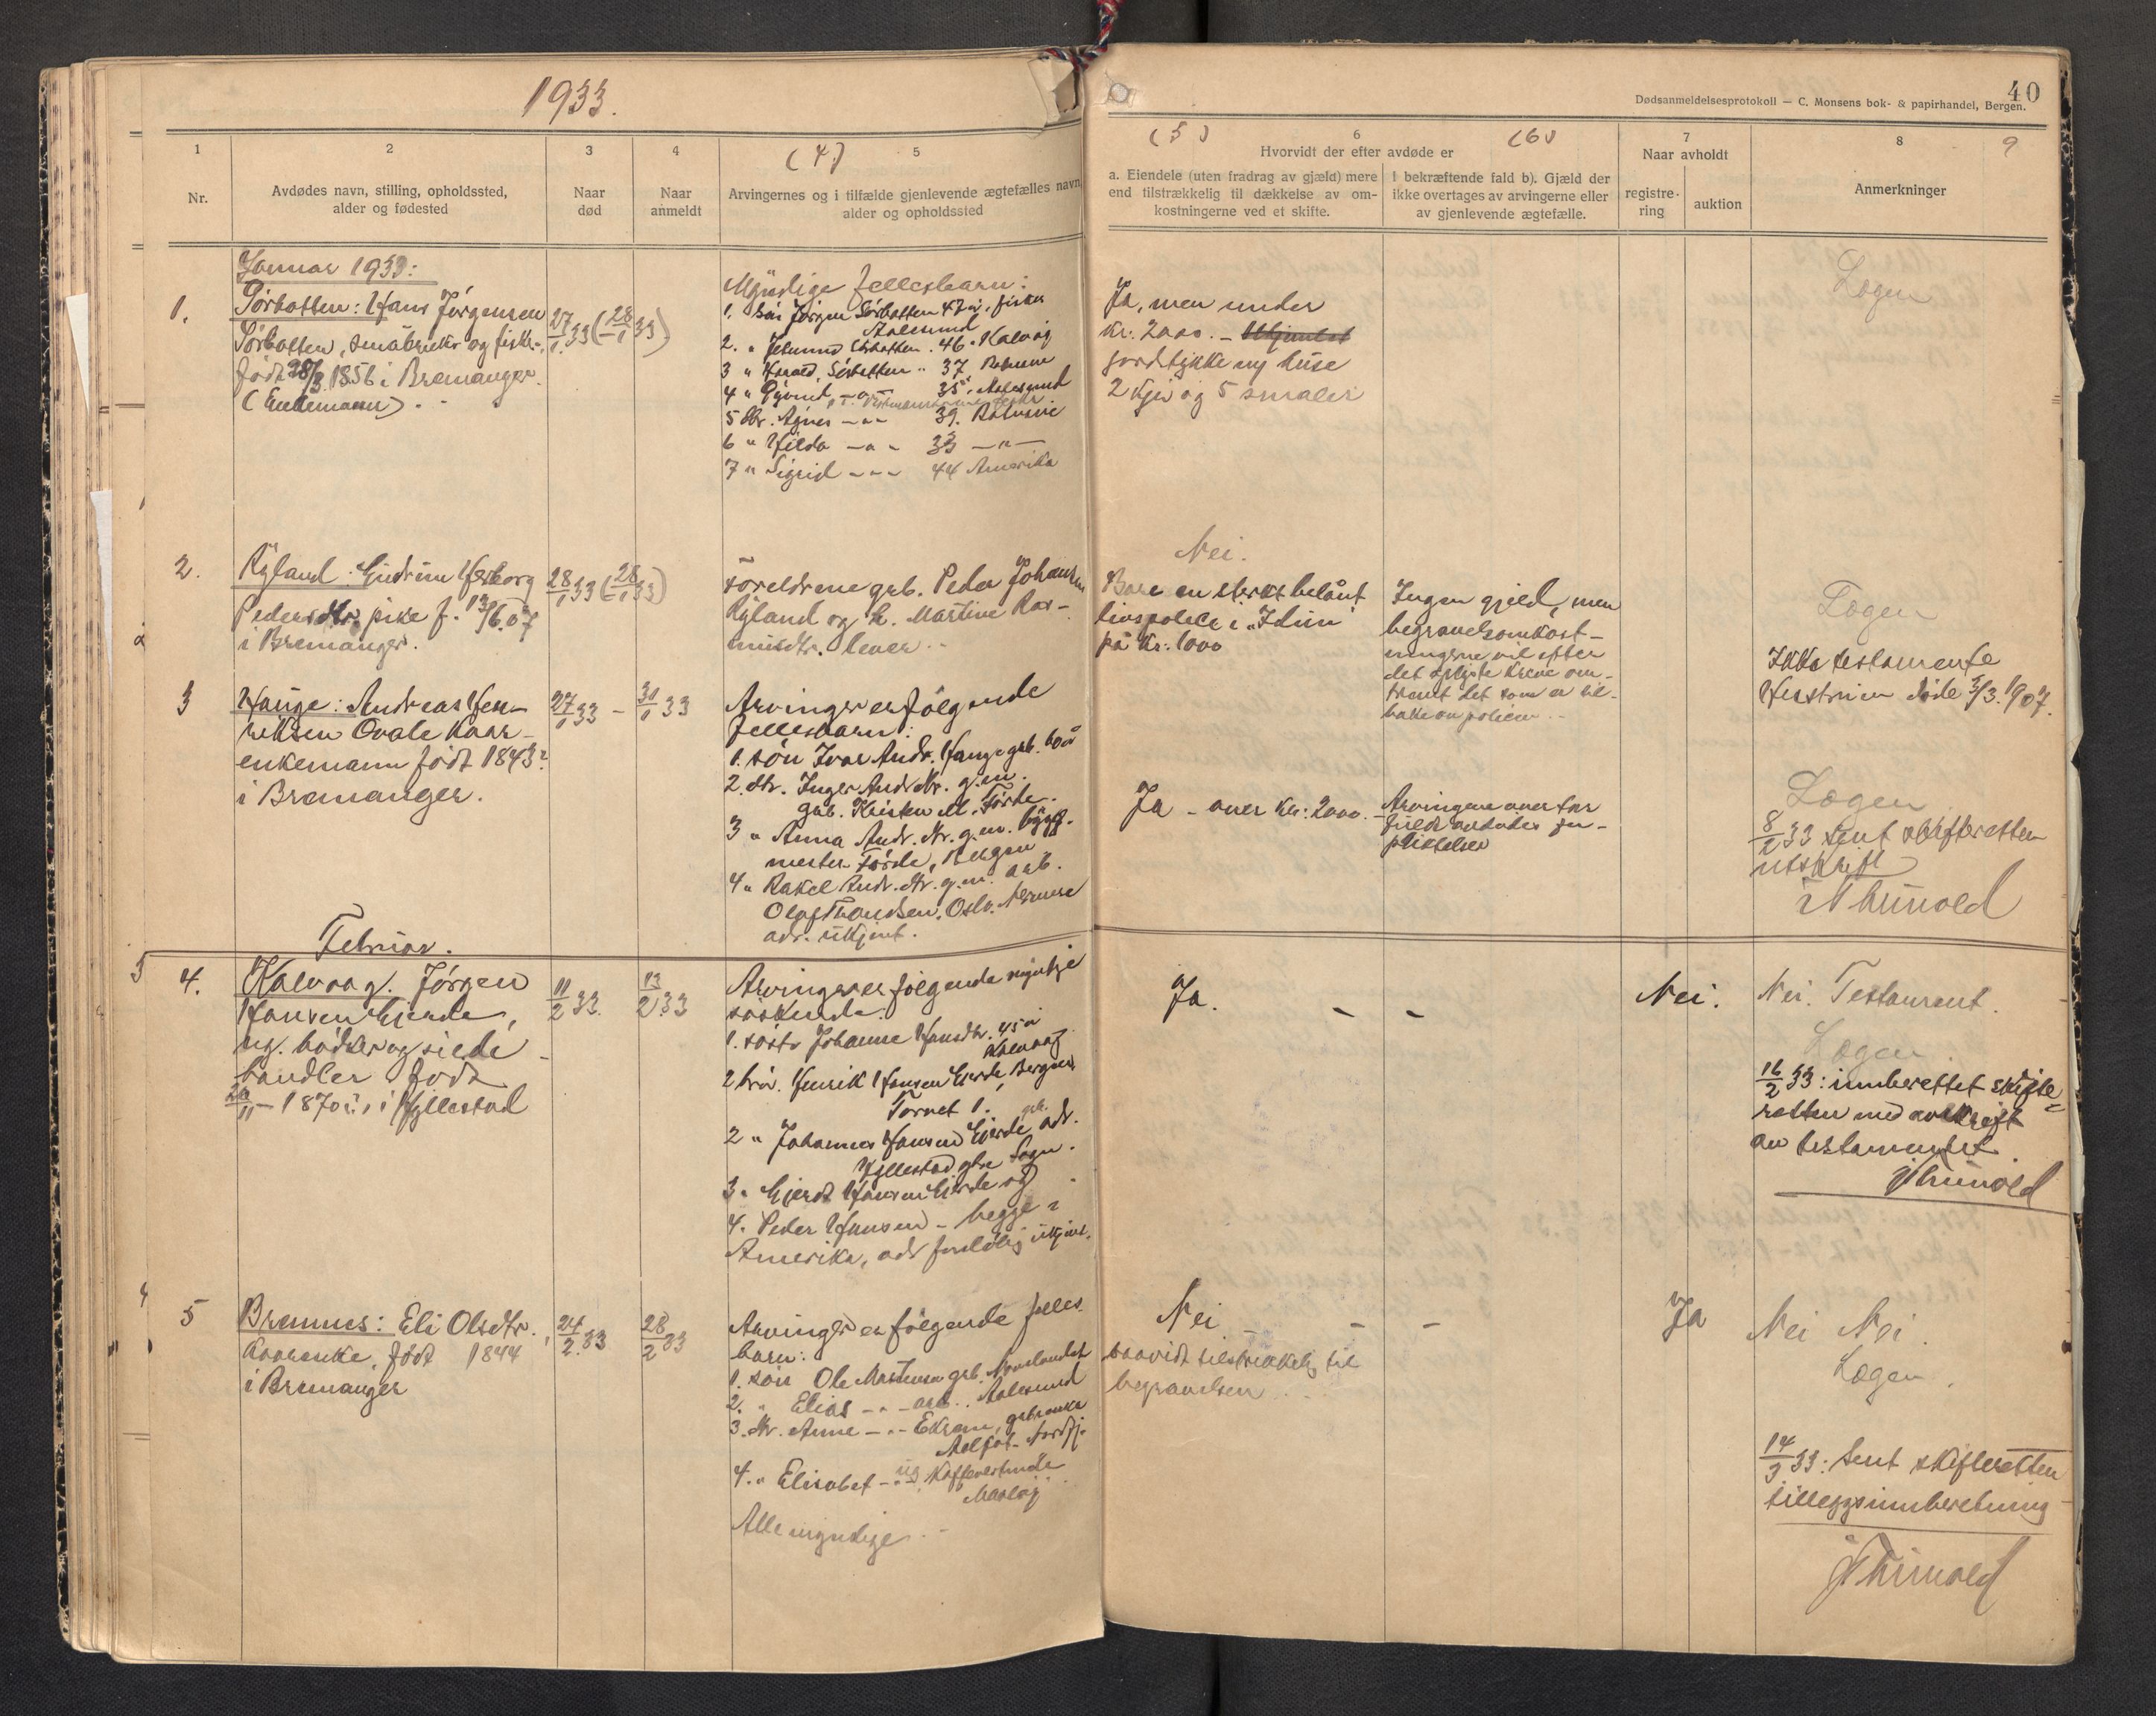 1933.
40
Dødsanmeldelsesprotokoll — C. Monsens bok- & papirhandel, Bergen.
1
2
3
4
(4)
5
(5)
6
(6)
7
8
9
Nr.
Avdødes navn, stilling, opholdssted,
alder og fødested
Naar
død
Naar
anmeldt
Arvingernes og i tilfælde gjenlevende ægtefælles navn
alder og opholdssted
Hvorvidt der efter avdøde er
a. Eiendele (uten fradrag av gjæld) mere
end tilstrækkelig til dækkelse av om-
kostningerne ved et skifte.
I bekræftende fald b). Gjæld der
ikke overtages av arvingerne eller
av gjenlevende ægtefælle.
Naar avholdt
registre-
ring
auktion
Anmerkninger
Januar 1933:
1.
Sørbotten: Hans Jørgensen
Sørbotten, småbruker og fisker,
født 28/3 1856 i Bremanger.
(Enkemann)
27/1 33 (28/1 33)
Myndige fellesbarn:
1. Søn Jørgen Sørbotten 47 år, fisker
Aalesund
2. " Sørbotten. 46 " Kalvåg
3 " Harald Sørbotten " 37
4 " Øyvind - " - 35 " Aalesund
5 dtr. Agnes - " - 39.
6 " Hilda - " - 33 - " -
7 " Sigrid - " - 44 Amerika
Ja, men under
kr: 2000. -
jordstykke og huse
2 kjør og 5 smaler
2.
Rylund: Gudrun Herborg
Pedersdtr. pike f. 13/6.07
i Bremanger.
28/1 33 (28/1 33)
Foreldrene grb. Peder Johansen
Rylund og h. Martine Ras-
musdtr. lever.
Nei.
Bare en sterkt belånt
livspolice i "Idun"
på kr: 1000
Ingen gjeld, men
begravelsomkost-
ningerne vil efter
det oplyste kreve om-
trent det som er til-
bake av policen
Ikke testamente
døde 5/3.1907.
3
Hauge: Andreas Hen-
riksen Kaar-
enkemann født 1843
i Bremanger.
27/1 33 - 31/1 33
Arvinger er følgende
fellesbarn:
1. søn Ivar Andr. Hauge grb. 60 år
2. dtr. Inger Andr.dtr. g.m.
grb. Kristen M. Førde.
3 " Anna Andr.dtr. g.m. bygg-
mester Førde, Bergen
4 " Rakel Andr.dtr. g.m. arb.
Olaf Oslo. Nermere
adr. ukjent.
Ja - over kr: 2000.
Arvingene overtar
fulde avdødes for-
pliktelser
8/2 33 Sent skifteretten
utskrift
Februar.
4.
Kalvaag. Jørgen
Hansen Gjerde,
ug. bødker og silde
handler født
1870 i Hyllestad
11/2 33.
13/2 33
Arvinger er følgende myndige
søskende:
1. søster Johanne Hansdtr. 45 år
Kalvaag
2 bror. Henrik Hansen Gjerde, Bergen,
Torvet 1.
2 " Johannes Hansen Gjerde, adr.
Hyllestad ytre Sogn.
3 " Gjert Hansen Gjerde og
4. Peder Hansen - begge i
Amerika, adr. foreløbig ukjent.
Ja.
- -
Nei.
Nei. Testament.
16/2 33: innberettet skifte-
retten med avskrift
av testamentet.
5
Bremnes: Eli Olsdtr.
Kaarenke, født 1844
i Bremanger
24/2 33
28/2 33
Arvinger er følgende felles-
barn:
1. søn Ole Martinsen grb.
2. " Elias - " - arb.. Aalesund
3. dtr. Anne - " - Ekren, grbr.enke
Aalfot - Nordfj.
4. " Elisabet - " - ug. Kaffevertinde
Maaløy
Alle myndige
Nei
saavidt tilstrekkelig til
begravelsen
- -
Ja
Nei Nei
14/3 33: Sent skifteretten
tilleggsinnberetning